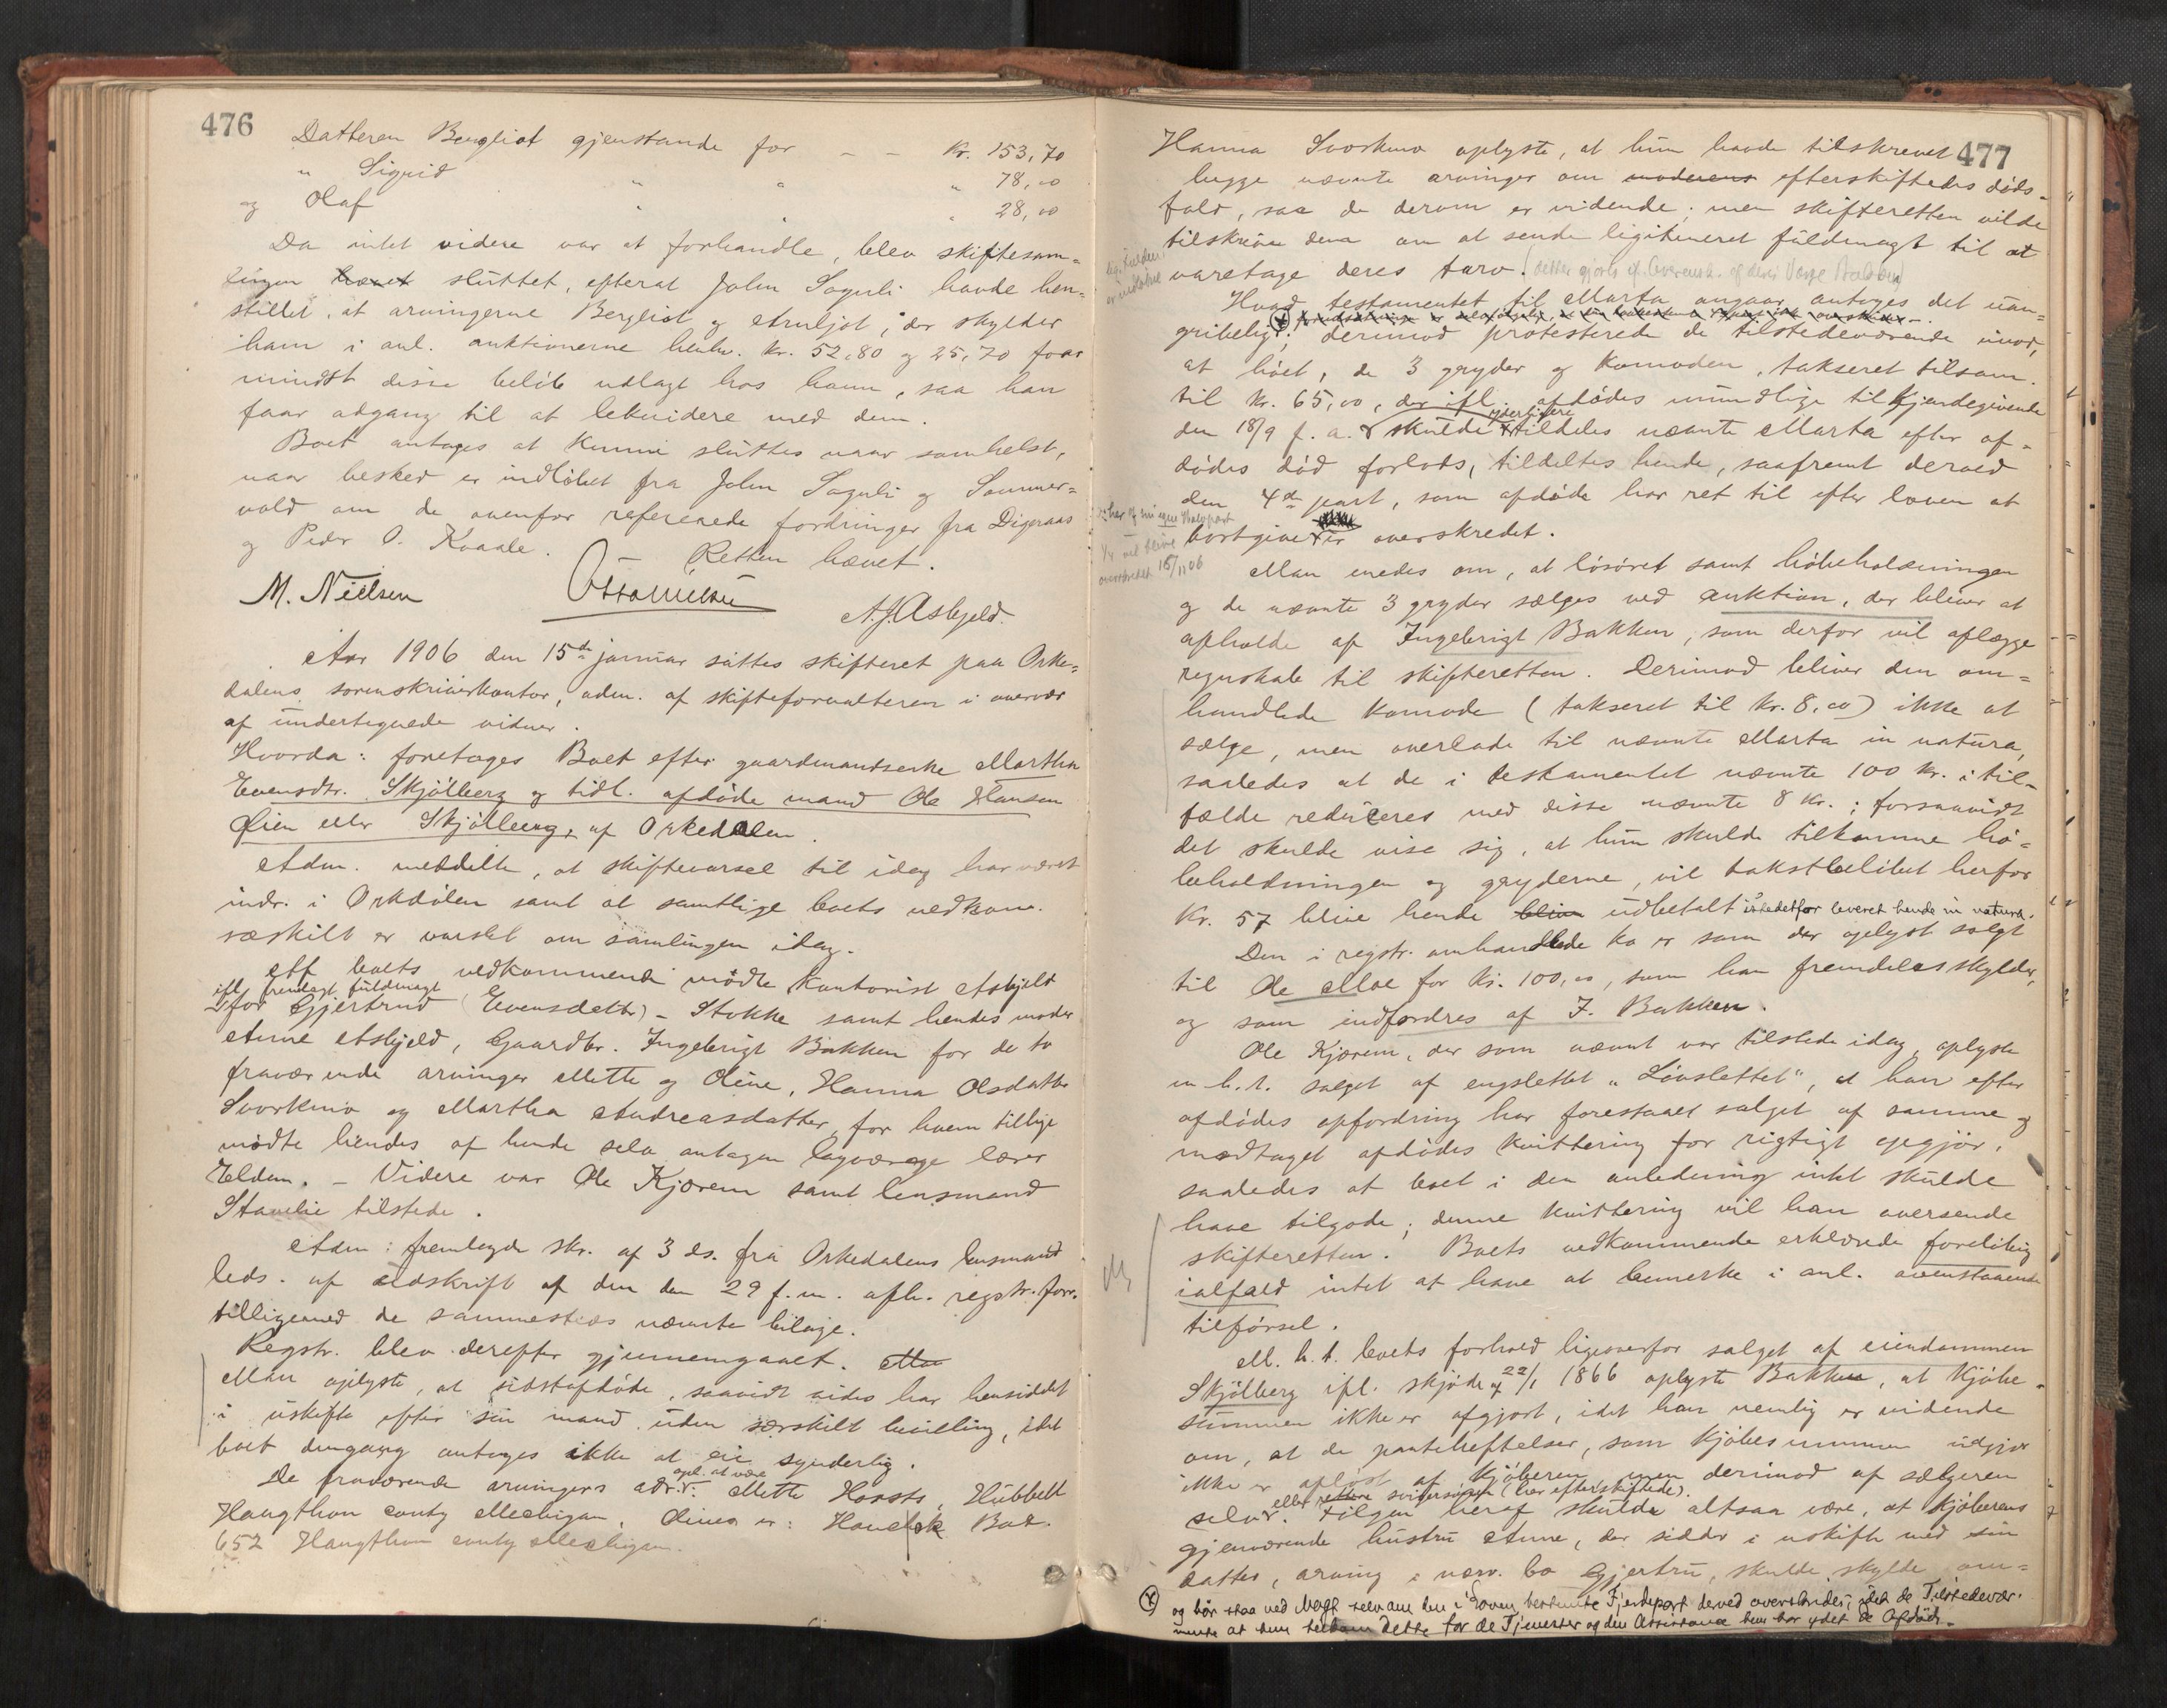 476
Datteren Bergliot gjenstande for - - Kr. 153,70
" Sigrid " " " 78,00
og Olaf " " " 28,00
Da intet videre var at forhandle, blev skiftesam=
lingen hævet sluttet, efterat John Soguli havde hen=
stillet, at arvingerne Bergliot og Arnljot, der skylder
ham i anl. auktionerne henh. Kr. 52,80 og 25,70 faar
mindst disse beløb udlagt hos ham, saa han
faar adgang til at lekvidere med dem.
Boet antages at kunne sluttes naar somhelst,
naar besked er indløbet fra John Soguli og Sommer=
vold om de ovenfor refererede fordringer fra Digeraas
og Peder O. Kvaale. Retten hævet.
M. Nielsen A. J. Asbjeld.
Aar 1906 den 15de januar sattes skifteret paa Orke=
dalens sorenskriverkontor, adm. af skifteforvalteren i overvær
af undertegnede vidner.
Hvorda: foretoges Boet efter gaardmandsenke Martha
Evensdtr. Skjølberg og tidl. afdøde mand Ole Hansen
Øien eller Skjølberg, af Orkedalen.
Adm. meddelte, at skiftevarsel til idag har været
indr. i Orkdølen samt at samtlige boets vedkom.
særskilt er varslet om samlingen idag.
Af boets vedkommende mødte kontorist Asbjeld
ifl. fremlagt fuldmagt
for Gjertrud (Evensdatter) - Stokke samt hendes moder
Anne Asbjeld, Gaardbr. Ingebrigt Bakken for de to
fraværende arvinger Mette og Oline, Hanna Olsdatter
Svorkmo og Martha Andreasdatter, for hvem tillige
mødte hendes af hende selv antagen lagværge lærer
Eldem. - Videre var Ole Kjørem samt lensmand
Stavlie tilstede.
Adm: fremlagde skr. af 3 ds. fra Orkedalens lensmand
leds. af udskrift af den den 29 f.m. afh. regstr. forr.
tilligemed de sammesteds nævnte bilage.
Regstr. blev derefter gjennemgaaet.
Man oplyste, at sidstafdøde, saavidt vides har hensiddet
i uskifte efter sin mand uden særskilt bevilling, idet
boet dengang antages ikke at eie synderlig.
De fraværende arvingers adr. opl. at være: Mette Horsts, Hubbell
Haugthon conty Mechigan, Olines er: Hancock Box
652 Haugthon conty Mechigan.
477
Hanna Svorkmo oplyste, at hun havde tilskrevet
begge nævnte arvinger om moderens efterskiftedes døds=
fald, saa de derom er vidende; men skifteretten vilde
tilskrive dem om at sende legitimeret fuldmagt til at
varetage deres tarv.
Hvad testamentet til Marta angaar, antages det uan=
gribeligt; derimod protesterede de tilstedeværende imod,
at høet, de 3 gryder og komoden, takseret tilsam.
til Kr. 65,00, der ifl. afdødes mundlige tilkjendegivende
den 18/9 f. a. skulde yderligere tildeles nævnte Marta efter af=
dødes død forlods, tildeltes hende, saafremt derved
den 4de part, som afdøde har ret til efter loven at
bortgive er overskredet.
15/1 06
Man enedes om, at løsøret samt høbeholdningen
og de nævnte 3 gryder sælges ved auktion, der bliver at
afholde af Ingebrigt Bakken, som derfor vil aflægge
regnskab til skifteretten. Derimod bliver den om=
handlede komode (takseret til Kr. 8,00) ikke at
sælge, men overlade til nævnte Marta in natura,
saaledes at de i testamentet nævnte 100 Kr. i til=
fælde reduceres med disse nævnte 8 Kr.; forsaavidt
det skulde vise sig, at hun skulde tilkomme hø=
beholdningen og gryderne, vil takstbeløbet herfor
Kr. 57 blive hende blive udbetalt istedetfor leveret hende in natura.
Den i regstr. omhandlede ko er som der oplyst solgt
til Ole Moe for Kr. 100,00, som han fremdeles skylder,
og som indfordres af I. Bakken.
Ole Kjørem, der som nævnt var tilstede idag, oplyste
m.h.t. salget af engslettet "Løvslettet", at han efter
afdødes opfordring har forestaaet salget af samme og
modtaget afdødes kvittering for rigtigt opgjør,
saaledes at boet i den anledning intet skulde
have tilgode; denne kvittering vil han oversende
skifteretten. Boets vedkommende erklærede foreløbig
ialfald intet at have at bemerke i anl. ovenstaaende
tilførsel.
M. h. t. boets forhold ligeoverfor salget af eiendommen
Skjølberg ifl. skjøde af 22/1 1866 oplyste Bakken, at kjøbe=
summen ikke er afgjort, idet han nemlig er vidende
om, at de pantehæftelser, som kjøbesummen udgjør
ikke er afløst af kjøberen, men derimod af sælgeren
eller rettere svigersønnen (her efterskiftede).
selv. Følgen heraf skulde altsaa være, at kjøberens
gjenværende hustru Anne, der sidder i uskifte med sin
datter, arving i nærv. bo Gjertru, skulde skylde om=
og bør staa ved Magt selv om den i Loven bestemte Fjerdepart derved overskrides, idet de Tilstedevær.
mente at hun tilkom dette for de Tjenester og den Assistance hun har ydet de Afdøde.